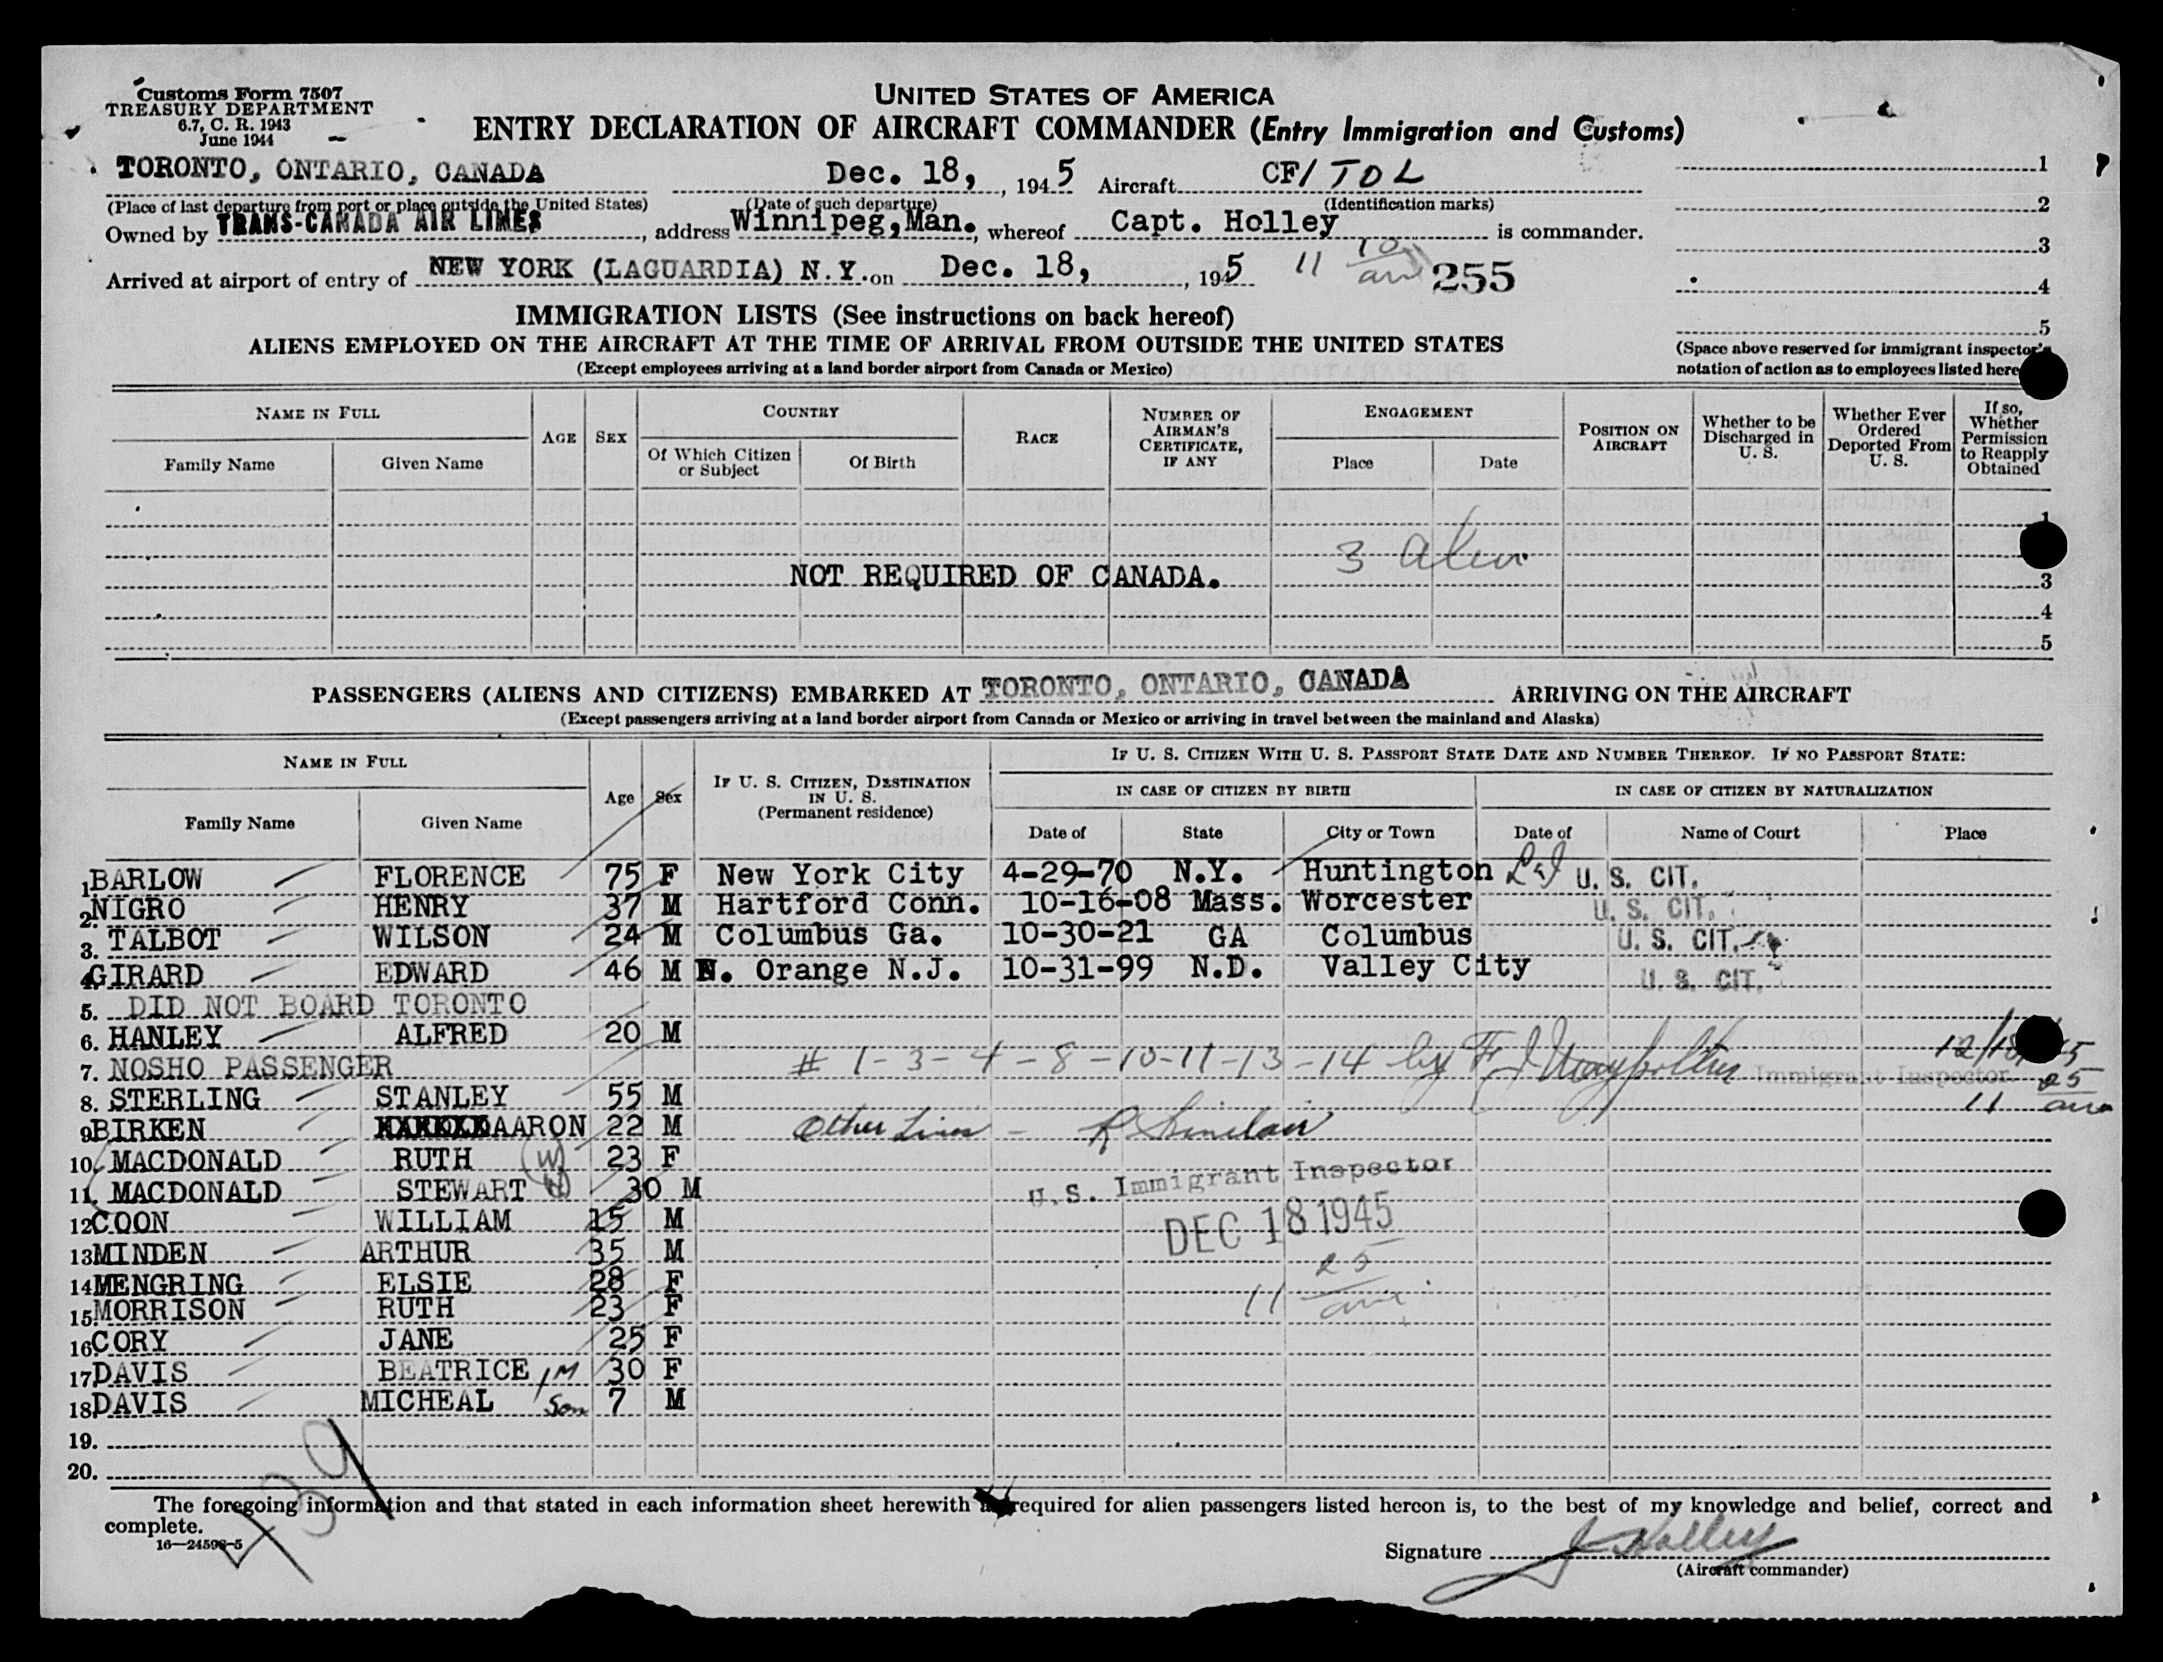 Customs Form 7507
TREASURY DEPARTMENT
6.7, C. R. 1943
June 1944
UNITED STATES OF AMERICA
ENTRY DECLARATION OF AIRCRAFT COMMANDER (Entry Immigration and Customs)
TORONTO, ONTARIO, CANADA Dec. 18, , 1945 Aircraft CF/TDL
(Place of last departure from port or place outside the United States) (Date of such departure) (Identification marks)
Owned by TRANS-CANADA AIR LINES, address Winnipeg,Man., whereof Capt. Holley is commander.
Arrived at airport of entry of NEW YORK (LAGUARDIA) N.Y. on Dec. 18, , 1945 11 10 am 255
1
2
3
4
5
(Space above reserved for immigrant inspector's
notation of action as to employees listed here
IMMIGRATION LISTS (See instructions on back hereof)
ALIENS EMPLOYED ON THE AIRCRAFT AT THE TIME OF ARRIVAL FROM OUTSIDE THE UNITED STATES
(Except employees arriving at a land border airport from Canada or Mexico)
NAME IN FULL
Family Name Given Name
AGE SEX
COUNTRY
Of Which Citizen or Subject Of Birth
RACE
NUMBER OF AIRMAN'S CERTIFICATE, IF ANY
ENGAGEMENT
Place Date
POSITION ON AIRCRAFT
Whether to be Discharged in U. S.
Whether Ever Ordered Deported From U. S.
If so, Whether Permission to Reapply Obtained
1
3
4
5
NOT REQUIRED OF CANADA. 3 alien
PASSENGERS (ALIENS AND CITIZENS) EMBARKED AT TORONTO, ONTARIO, CANADA ARRIVING ON THE AIRCRAFT
(Except passengers arriving at a land border airport from Canada or Mexico or arriving in travel between the mainland and Alaska)
NAME IN FULL
Family Name Given Name
Age Sex
IF U. S. CITIZEN, DESTINATION IN U. S.
(Permanent residence)
IF U. S. CITIZEN WITH U. S. PASSPORT STATE DATE AND NUMBER THEREOF. IF NO PASSPORT STATE:
IN CASE OF CITIZEN BY BIRTH IN CASE OF CITIZEN BY NATURALIZATION
Date of State City or Town Date of Name of Court Place
1 BARLOW FLORENCE 75 F New York City 4-29-70 N.Y. Huntington U. S. CIT.
2. NIGRO HENRY 37 M Hartford Conn. 10-16-08 Mass. Worcester U. S. CIT.
3. TALBOT WILSON 24 M Columbus Ga. 10-30-21 GA Columbus U. S. CIT.
4. GIRARD EDWARD 46 M N. Orange N.J. 10-31-99 N.D. Valley City U. S. CIT.
5. DID NOT BOARD TORONTO
6. HANLEY ALFRED 20 M
7. NOSHO PASSENGER # 1-3-4-8-10-11-13-14 by 12/18/45
Immigrant Inspector
8. STERLING STANLEY 55 M 11 25 am
9 BIRKEN AARON 22 M Other Lines - R Sinclair
10. MACDONALD RUTH (W) 23 F
11. MACDONALD STEWART (H) 30 M U.S. Immigrant Inspector
12 COON WILLIAM 15 M DEC 18 1945
13 MINDEN ARTHUR 35 M
14 MENGRING ELSIE 28 F 11 25 am
15. MORRISON RUTH 23 F
16 CORY JANE 25 F
17 DAVIS BEATRICE M 30 F
18. DAVIS MICHEAL Son 7 M
19.
20.
439
The foregoing information and that stated in each information sheet herewith required for alien passengers listed hereon is, to the best of my knowledge and belief, correct and
complete.
16—24598-5
Signature J Holley
(Aircraft commander)